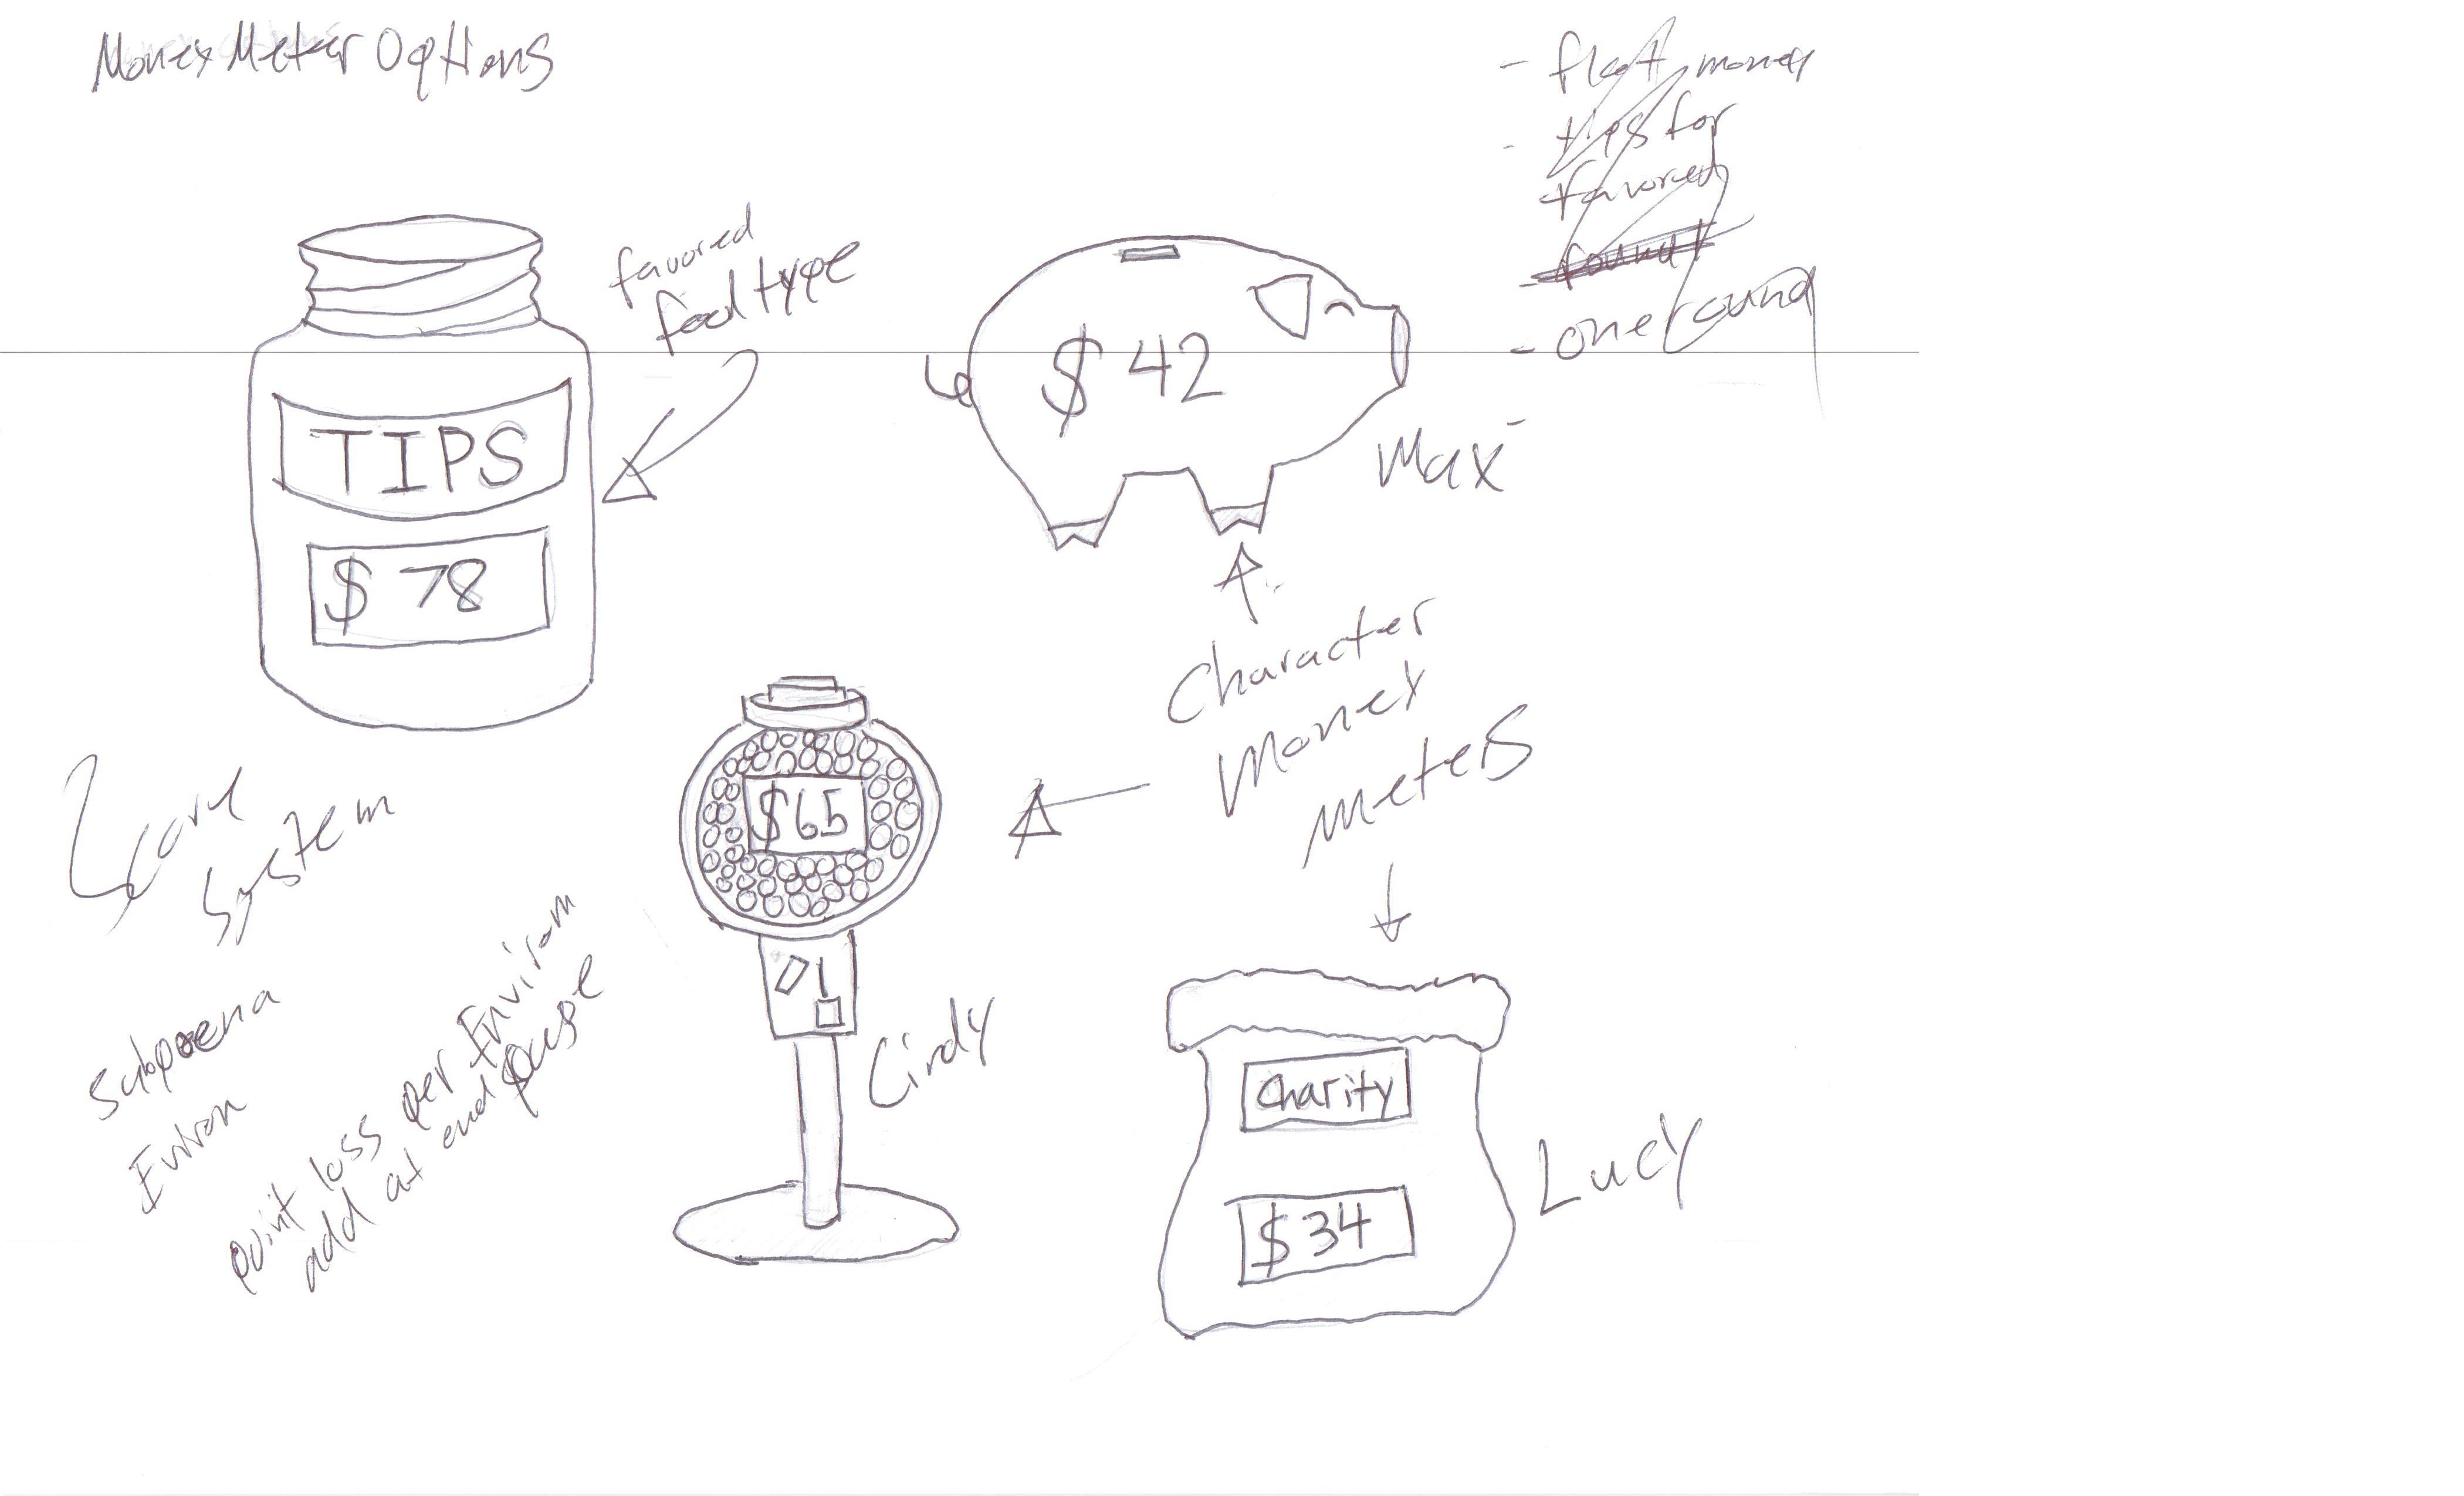 Money Meter Options
- flat money
- tips for
favored
- one round
favored
food type
TIPS
$ 78
$ 42
Max
Character
Money
Meters
$65
Cindy
Charity
$ 34
Lucy
Score
System
Subpoena
point loss per Environ
add at end pause